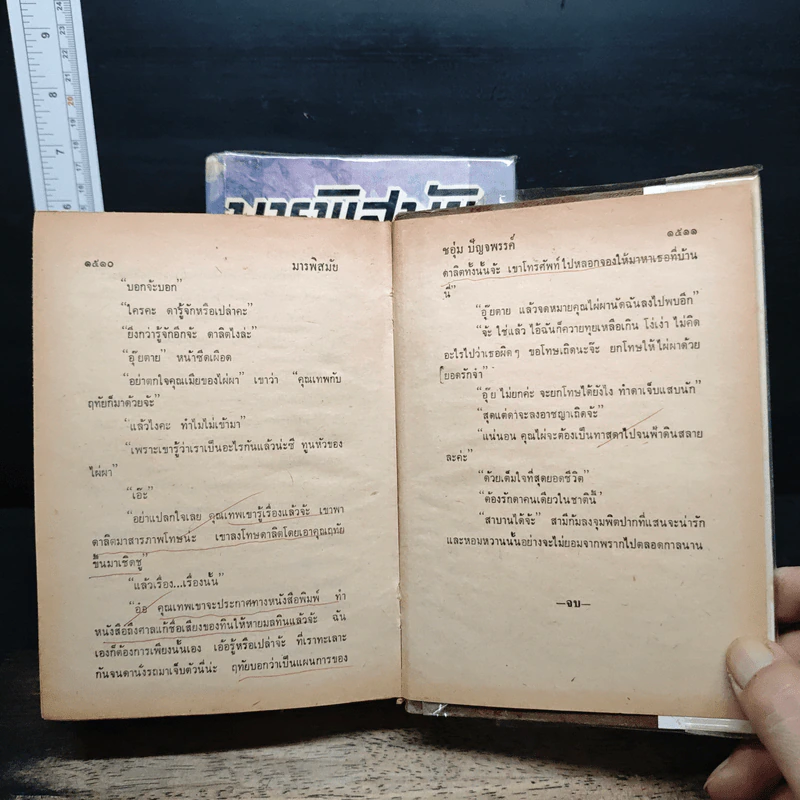 มารพิสมัย
๑๕๑๐
มารพิสมัย
"บอกจ้ะบอก"
"ใครคะ ดารู้จักหรือเปล่าคะ"
"ยิ่งกว่ารู้จักอีกจ้ะ ดาลิดไงล่ะ"
"อุ๊ยตาย" หน้าซีดเผือด
"อย่าตกใจคุณเมียของไผ่ผา" เขาว่า "คุณเทพกับ
ฤทัยก็มาด้วยจ้ะ"
"แล้วไงคะ ทำไมไม่เข้ามา"
"เพราะเขารู้ว่าเราเป็นอะไรกันแล้วน่ะซี ทูนหัวของ
ไผ่ผา"
"เอ๊ะ"
"อย่าแปลกใจเลย คุณเทพเขารู้เรื่องแล้วจ้ะ เขาพา
ดาลิดมาสารภาพโทษน่ะ เขาลงโทษดาลิดโดยเอาคุณฤทัย
ขึ้นมาเชิดชู"
"แล้วเรื่อง...เรื่องนั้น"
"อ๋อ คุณเทพเขาจะประกาศทางหนังสือพิมพ์ ทำ
หนังสือถึงศาลแก้ชื่อเสียงของทินให้หายมลทินแล้วจ้ะ ฉัน
เองก็ต้องการเพียงนั้นเอง เอ้อรู้หรือเปล่าจ๊ะ ที่เราทะเลาะ
กันจนดานั่งรถมาเจ็บตัวนี่น่ะ ฤทัยบอกว่าเป็นแผนการของ
๑๕๑๑
ชอุ่ม ปัญจพรรค์
ดาลิดทั้งนั้นจ้ะ เขาโทรศัพท์ไปหลอกจองให้มาหาเธอที่บ้าน
นี้"
"อุ๊ยตาย แล้วจดหมายคุณไผ่ผานัดฉันลงไปพบอีก"
"จ้ะ ใช่แล้ว ไอ้ฉันก็ควายทุยเหลือเกิน โง่เง่า ไม่คิด
อะไรไปว่าเธอผิดๆ ขอโทษเถิดนะจ๊ะ ยกโทษให้ไผ่ผาด้วย
ยอดรักจ๋า"
"อุ๊ย ไม่ยกค่ะ จะยกโทษได้ยังไง ทำดาเจ็บแสบนัก"
"สุดแต่ดาจะลงอาชญาเถิดจ้ะ"
"แน่นอน คุณไผ่จะต้องเป็นทาสดาไปจนฟ้าดินสลาย
ละค่ะ"
"ด้วยเต็มใจที่สุดยอดชีวิต"
"ต้องรักดาคนเดียวในชาตินี้"
"สาบานได้จ้ะ" สามีก้มลงจุมพิตปากที่แสนจะน่ารัก
และหอมหวานนั้นอย่างจะไม่ยอมจากพรากไปตลอดกาลนาน
—จบ—